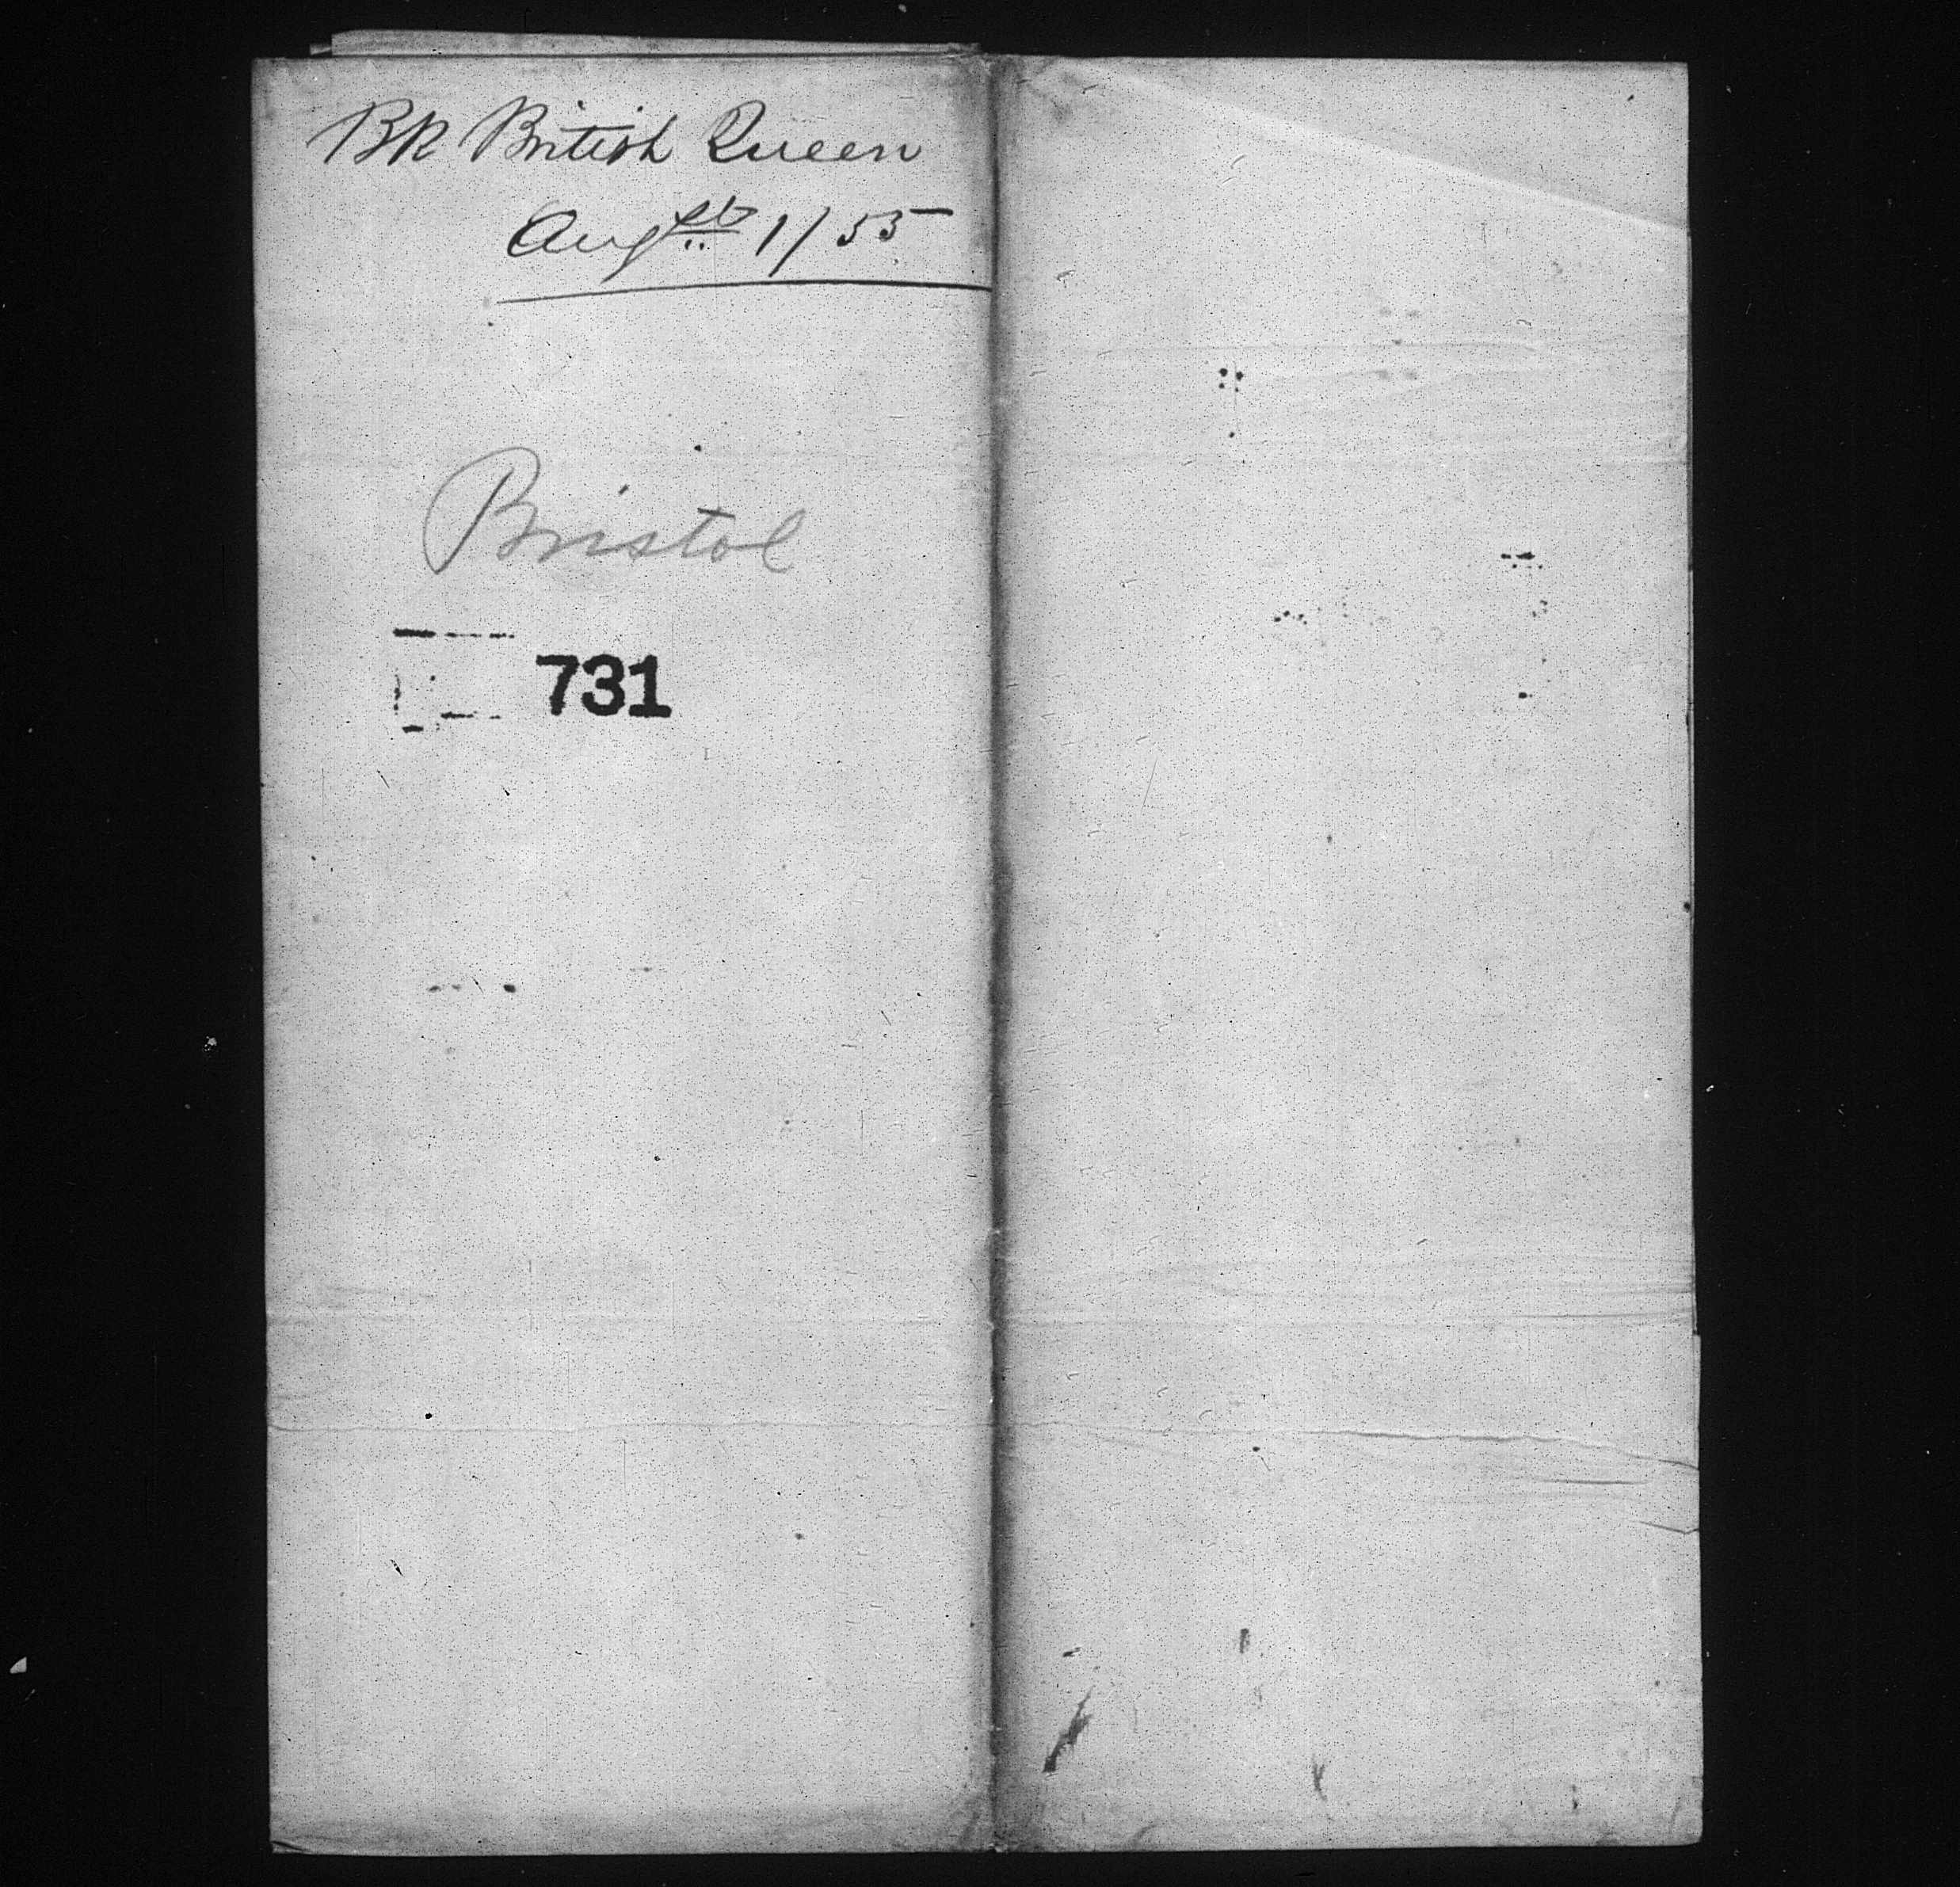 BK British Queen
Augst 1/55
Bristol
731